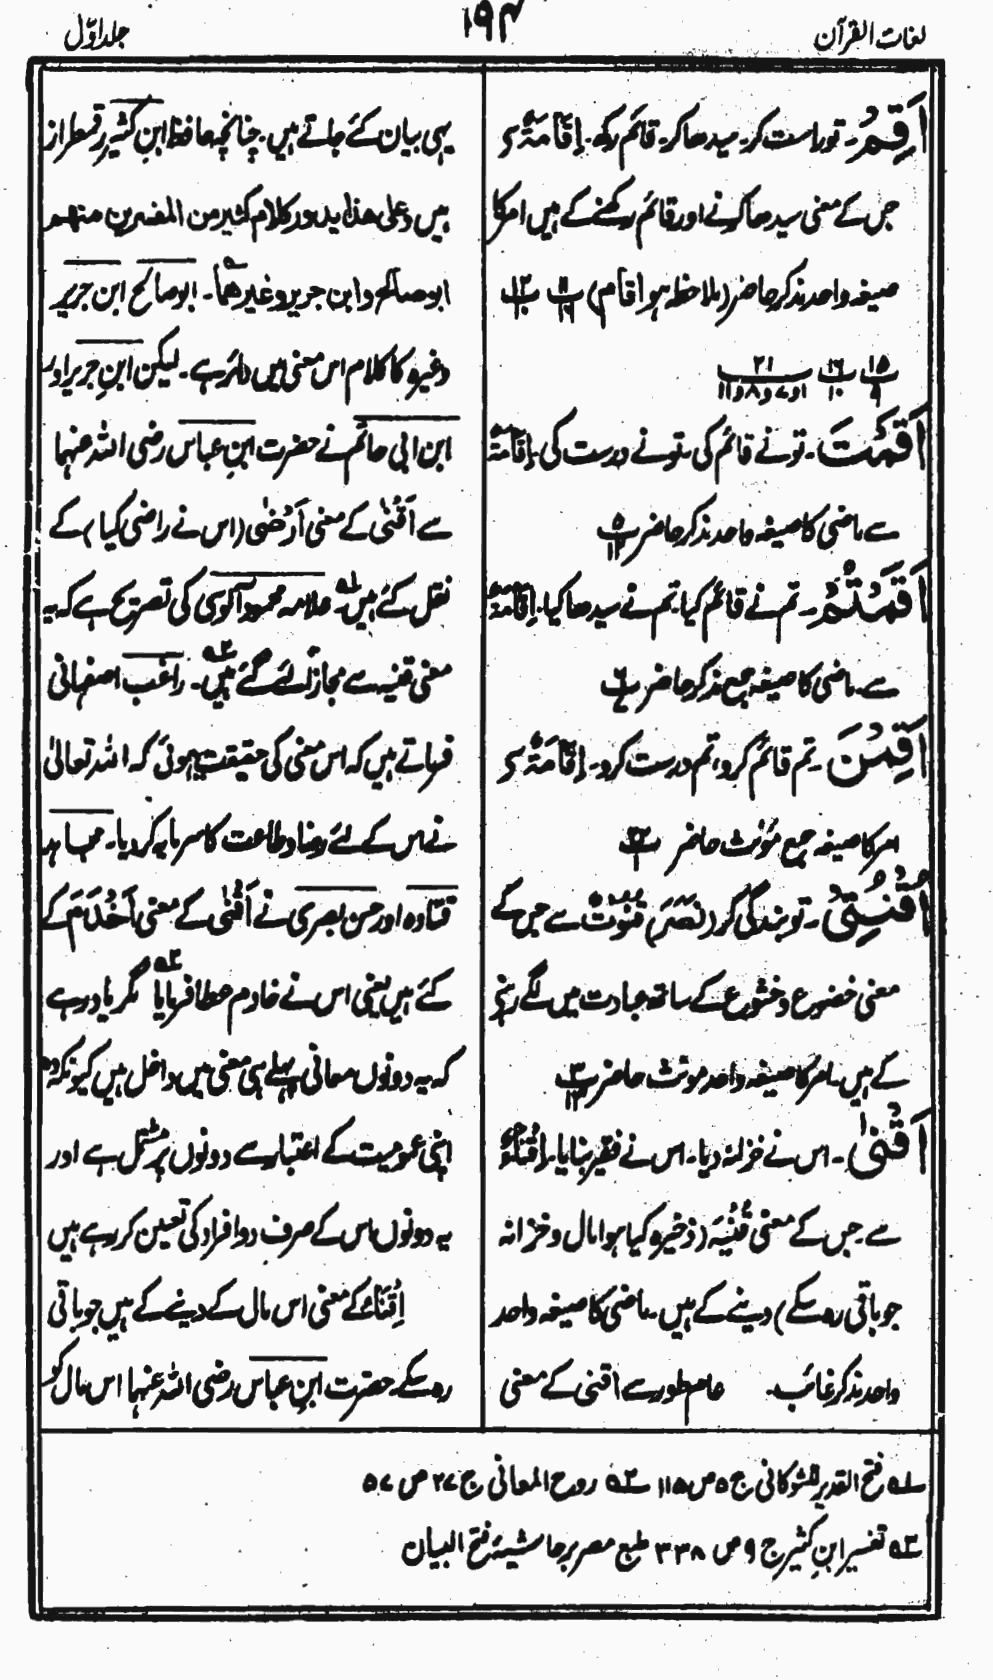 لغات القرآن
۱۹۴
جلد اوّل
اَقِمْ۔ تو راست کر۔ سیدھا کر۔ قائم رکھ۔ اِقَامَۃٌ سے
جس کے معنی سیدھا کرنے اور قائم رکھنے کے ہیں امر کا
صیغہ واحد مذکر حاضر (ملاحظہ ہو اقام)
۱۵ ۱۶ ۲۱
۹ ۱۰ ۱ و ۷ و ۸ و ۱۱
اَقَمْتَ۔ تو نے قائم کی، تو نے درست کی۔ اِقَامَۃٌ
سے ماضی کا صیغہ واحد مذکر حاضر ۵ ۱۲
اَقَمْتُمْ۔ تم نے قائم کیا، تم نے سیدھا کیا۔ اِقَامَۃٌ
سے۔ ماضی کا صیغہ جمع مذکر حاضر ۶ ۷
اَقِمْنَ۔ تم قائم کرو، تم درست کرو۔ اِقَامَۃٌ سے
امر کا صیغہ جمع مؤنث حاضر ۲۲ ۱
اُقْنُتِیْ۔ تو بندگی کر (نَصَرَ) قُنُوْتٌ سے جس کے
معنی خضوع و خشوع کے ساتھ عبادت میں لگے رہنے
کے ہیں۔ امر کا صیغہ واحد مونث حاضر ۳ ۱۳
اَقْنٰی۔ اس نے خزانہ دیا۔ اس نے فقیر بنایا۔ اِقْنَاءٌ
سے۔ جس کے معنی قُنْیَہ (ذخیرہ کیا ہوا مال و خزانہ
جو باقی رہ سکے) دینے کے ہیں۔ ماضی کا صیغہ واحد
واحد مذکر غائب۔ عام طور سے اقنی کے معنی
یہی بیان کئے جاتے ہیں۔ چنانچہ حافظ ابن کثیر رقمطراز
ہیں وعلی ھذا یدور کلام کثیر من المفسرین منھم
ابو صالح وابن جریر وغیرھما۔ ابو صالح ابن جریر
وغیرہ کا کلام اس معنی میں دائر ہے۔ لیکن ابن جریر اور
ابن ابی حاتم نے حضرت ابن عباس رضی اللہ عنہما
سے اَقْنٰی کے معنی اَرْضٰی (اس نے راضی کیا) کے
نقل کئے ہیں۔ علامہ محمود آلوسی کی تصریح ہے کہ یہ
معنی قنیہ سے مجازاً لئے گئے ہیں۔ راغب اصفہانی
فرماتے ہیں کہ اس معنی کی حقیقت یہ ہوئی کہ اللہ تعالیٰ
نے اس کے لئے رضا و طاعت کا سرمایہ کر دیا۔ مجاہد
قتادہ اور حسن بصری نے اَقْنٰی کے معنی اَخْدَامَ کے
کئے ہیں یعنی اس نے خادم عطا فرمایا مگر یاد رہے
کہ یہ دونوں معانی پہلے ہی معنی میں داخل ہیں کیونکہ وہ
اپنی عمومیت کے اعتبار سے دونوں پر مشتمل ہے اور
یہ دونوں اس کے صرف دو افراد کی تعیین کر رہے ہیں
اِقْنَاء کے معنی اس مال کے دینے کے ہیں جو باقی
رہ سکے۔ حضرت ابن عباس رضی اللہ عنہما اس مال کو
۱ فتح القدیر للشوکانی ج ۵ ص ۱۱۵ ۲ روح المعانی ج ۲۷ ص ۵۷
۳ تفسیر ابن کثیر ج ۹ ص ۳۳۸ طبع مصر بر حاشیۂ فتح البیان